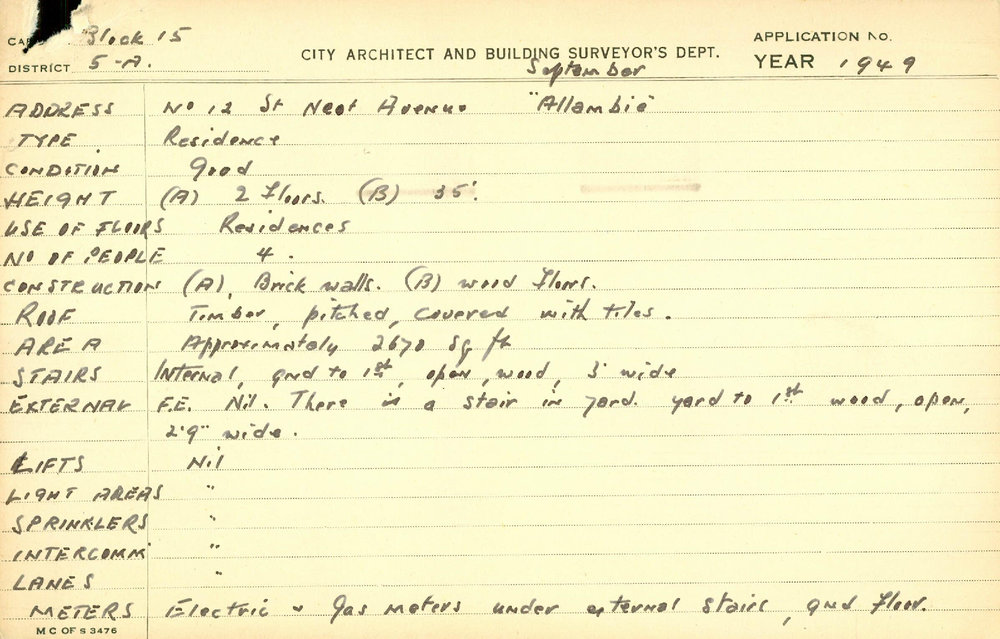 Block 15
CITY ARCHITECT AND BUILDING SURVEYOR'S DEPT.
APPLICATION No.
DISTRICT 5-A.
September
YEAR 1949
ADDRESS No 12 St Neot Avenue "Allambie"
TYPE Residence
CONDITION Good
HEIGHT (A) 2 floors. (B) 35'.
USE OF FLOORS Residences
No OF PEOPLE 4.
CONSTRUCTION (A), Brick walls. (B) wood floors.
ROOF Timber, pitched, covered with tiles.
AREA Approximately 2670 Sq ft
STAIRS Internal, gnd to 1st, open, wood, 3' wide
EXTERNAL F.E. Nil. There is a stair in yard. yard to 1st wood, open,
2'9" wide.
LIFTS Nil
LIGHT AREAS "
SPRINKLERS "
INTERCOMM "
LANES "
METERS Electric & Gas meters under external stairs, gnd floor.
M C OF S 3476